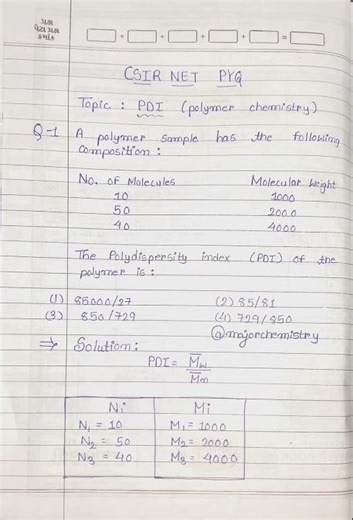 પ્રશ્ન
પેટા પ્રશ્ન
ક્રમાંક
+ + + + =
CSIR NET PYQ
Topic : PDI (polymer chemistry)
Q-1 A polymer sample has the following
composition :
No. of Molecules Molecular Weight
10 1000
50 2000
40 4000
The Polydispersity index (PDI) of the
polymer is :
(1) 85000/27 (2) 85/81
(3) 850/729 (4) 729/850
@majorchemistry
⇒ Solution :
PDI = M̅w / M̅n
Ni Mi
N₁ = 10 M₁ = 1000
N₂ = 50 M₂ = 2000
N₃ = 40 M₃ = 4000